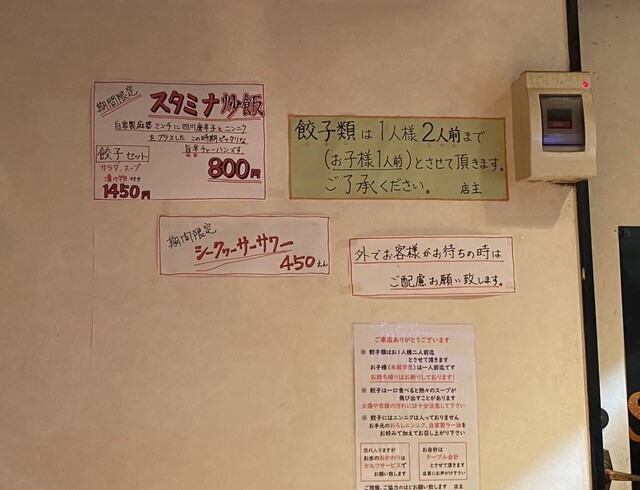 期間限定
スタミナ炒飯
自家製麻婆ミンチに四川唐辛子とニンニク
をプラスした この時期ピッタリな
旨辛チャーハンです。
800円
餃子セット
サラダ、スープ
漬け物 付き
1450円
餃子類は1人様2人前まで
(お子様1人前)とさせて頂きます。
ご了承ください。 店主
期間限定
シークヮーサーサワー
450えん
外でお客様がお待ちの時は
ご配慮お願い致します。
ご来店ありがとうございます
※ 餃子類はお1人様二人前迄
とさせて頂きます
お子様(未就学児)は一人前迄です
お持ち帰りはお断りしております!
※ 餃子は一口食べると熱々のスープが
飛び出すことがあります
火傷や衣服の汚れには十分注意して下さい
※ 餃子にはニンニクは入っておりません
お手元のおろしニンニク、自家製ラー油を
お好みで加えてお召し上がり下さい
恐れ入りますが
お水のおかわりは
セルフサービスで
お願い致します
お会計は
テーブル会計
とさせて頂きます
店員にお声がけ下さい
ご理解、ご協力のほどお願い致します 店主